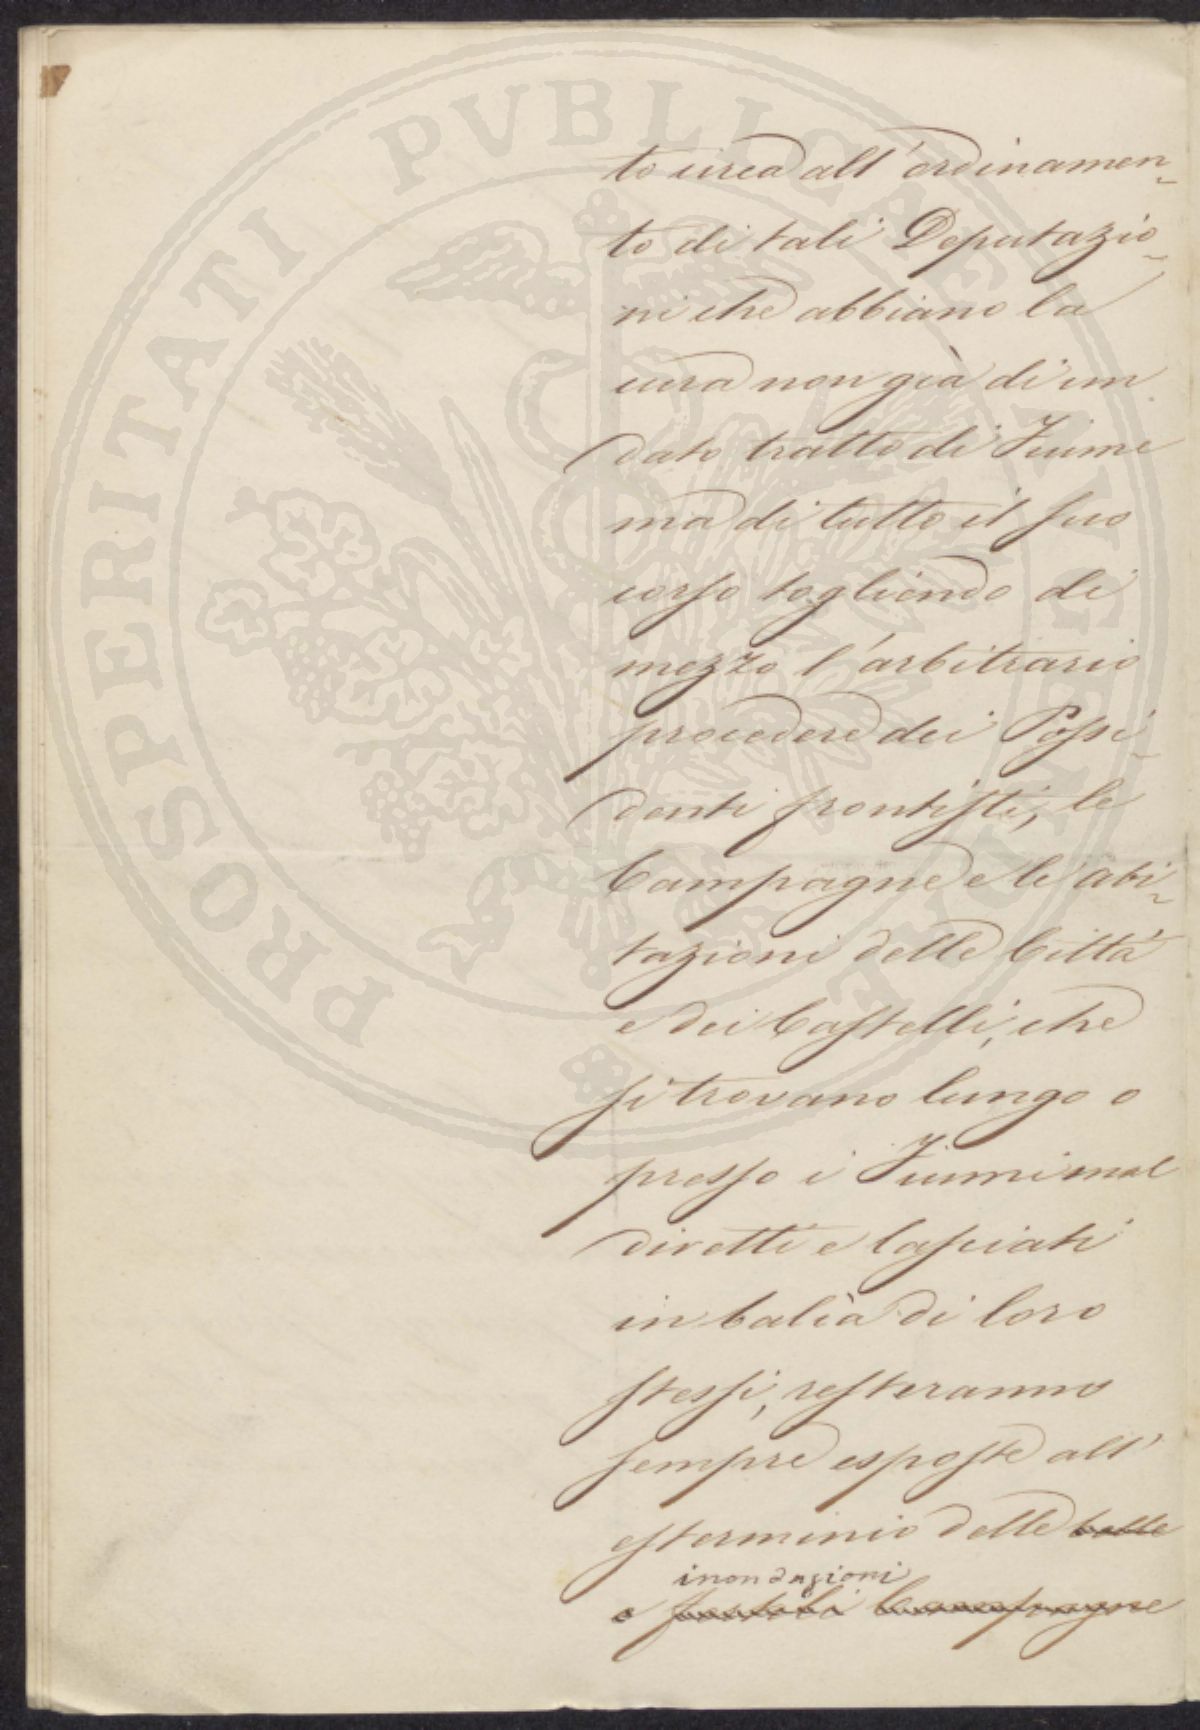 PROSPERITATI PVBLICAE AVGENDAE
to circa all'ordinamen-
to di tali Deputazio-
ni che abbiano la
cura non già di un
dato tratto di Fiume
ma di tutto il suo
corso togliendo di
mezzo l'arbitrario
procedere dei Possi-
denti frontisti, le
Campagne e le abi-
tazioni delle Città
e dei Castelli, che
si trovano lungo o
presso i Fiumi mal
diretti e lasciati
in balìa di loro
stessi, resteranno
sempre esposte all'
esterminio delle belle
inondazioni
e fertili Campagne